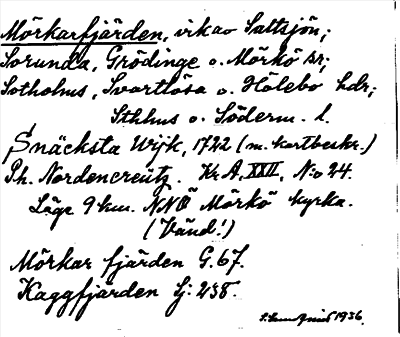 Mörkarfjärden, vik av Saltsjön;
Sorunda, Grödinge o. Mörkö sr;
Sotholms, Svartlösa o. Hölebo hdr;
Sthlms o. Söderm. l.
Snäcksta Wijk, 1722 (m. kartbeskr.)
Ph. Nordencreutz. Kr. A. XXII, N:o 24.
Läge 9 km. NNO Mörkö kyrka.
(Vänd!)
Mörkar fjärden G. 67.
Kaggfjärden Sj: 238.
1936.